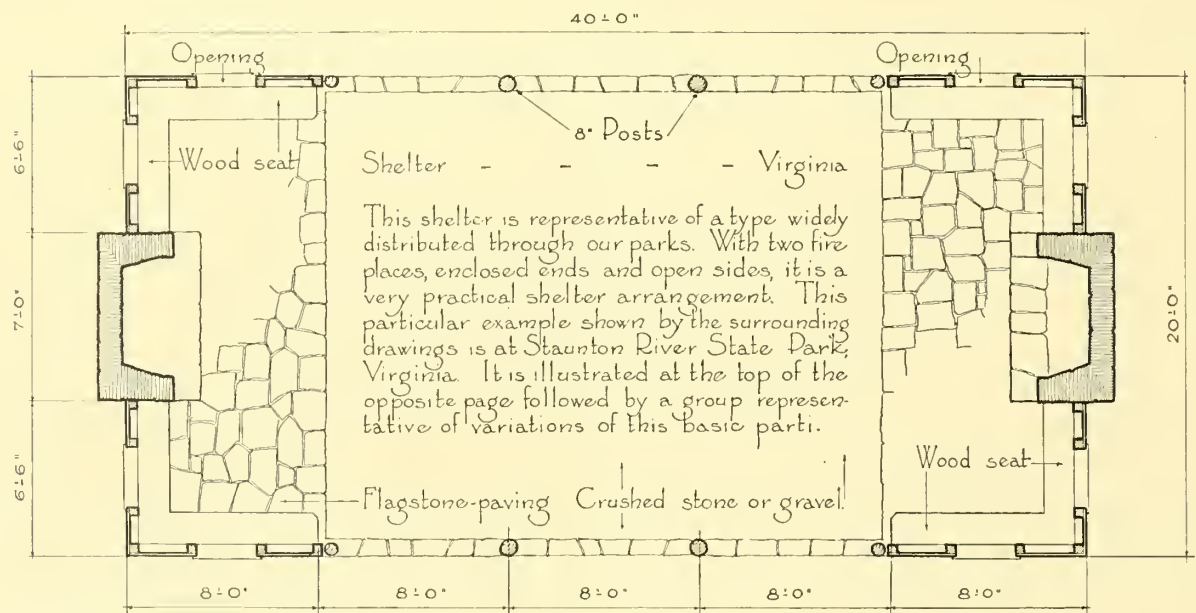 40'-0"
Opening
Opening
8" Posts
6'-6"
Wood seat
Shelter - - - - Virginia
This shelter is representative of a type widely
distributed through our parks. With two fire
places, enclosed ends and open sides, it is a
very practical shelter arrangement. This
particular example shown by the surrounding
drawings is at Staunton River State Park,
Virginia. It is illustrated at the top of the
opposite page followed by a group represen-
tative of variations of this basic parti.
7'-0"
20'-0"
6'-6"
Wood seat
Flagstone-paving
Crushed stone or gravel.
8'-0"
8'-0"
8'-0"
8'-0"
8'-0"